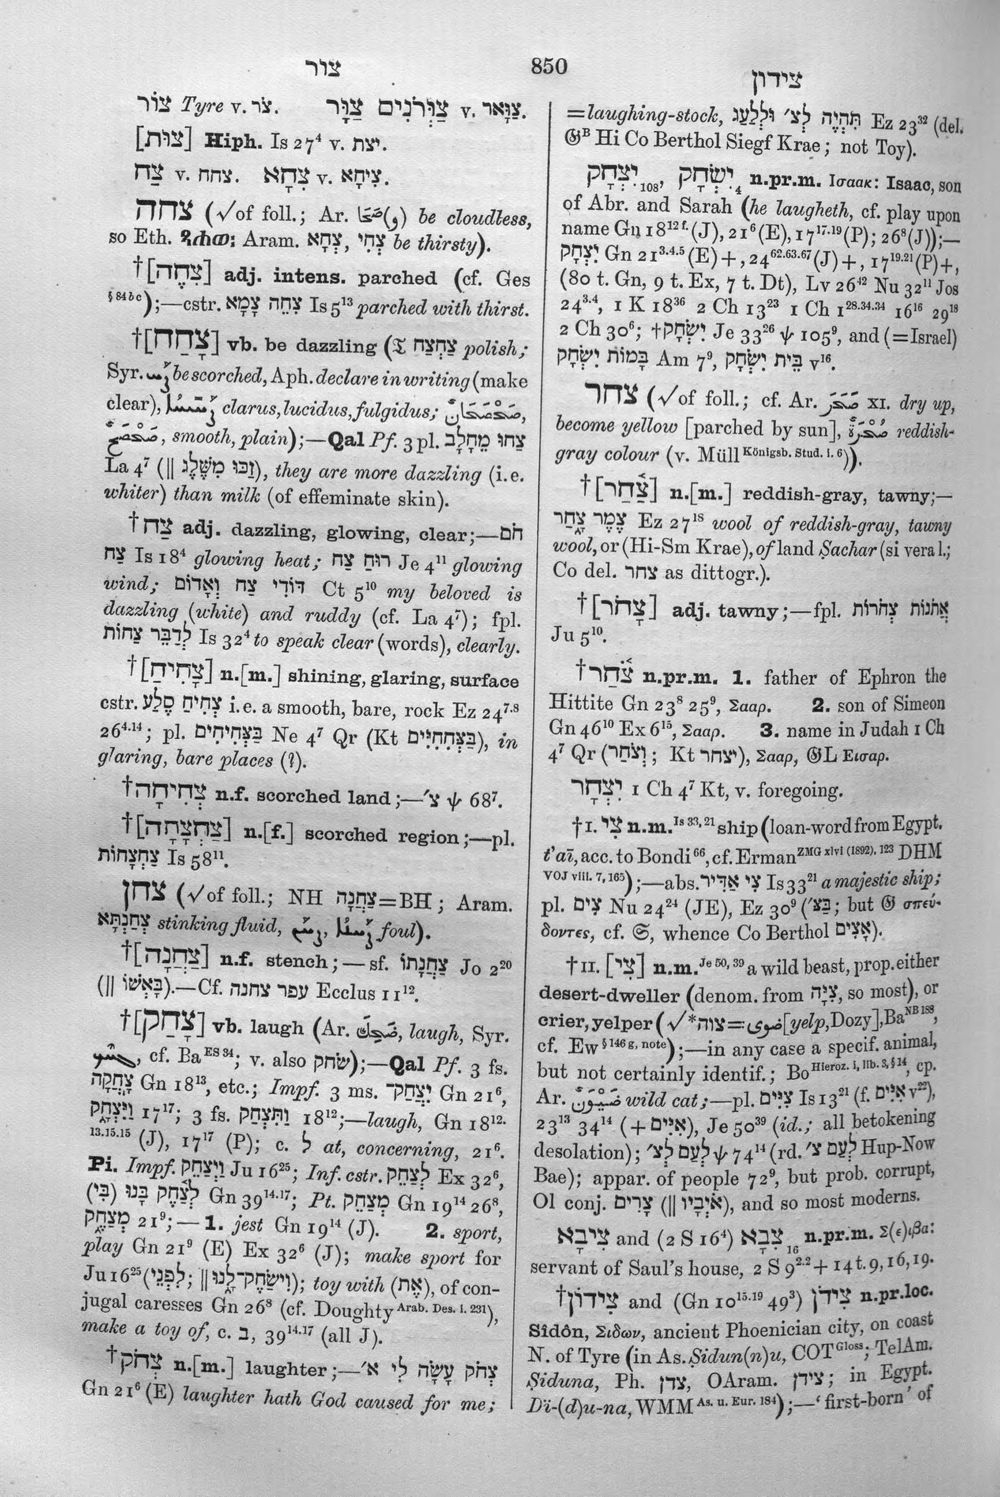 צור
850
צידון
צוֹר Tyre v. צֹר. צַוָּר צַוְּרֹנִים v. צַוָּאר.
[צוּת] Hiph. Is 27⁴ v. יצת.
צַח v. צחח. צִחָא v. צִיחָא.
צחה (√ of foll.; Ar. be cloudless,
so Eth. Aram. צְחָא, צְחִי be thirsty).
†[צִחֶה] adj. intens. parched (cf. Ges
§ 84 b c);—cstr. צִחֵה צָמָא Is 5¹³ parched with thirst.
†[צָחַח] vb. be dazzling (𝔗 צחצח polish;
Syr. be scorched, Aph. declare in writing (make
clear), clarus, lucidus, fulgidus;
smooth, plain);—Qal Pf. 3 pl. צַחוּ מֵחָלָב
La 4⁷ (|| זַכּוּ מִשֶּׁלֶג), they are more dazzling (i.e.
whiter) than milk (of effeminate skin).
†צַח adj. dazzling, glowing, clear;—חֹם
צַח Is 18⁴ glowing heat; רוּחַ צַח Je 4¹¹ glowing
wind; דּוֹדִי צַח וְאָדוֹם Ct 5¹⁰ my beloved is
dazzling (white) and ruddy (cf. La 4⁷); fpl.
לְדַבֵּר צָחוֹת Is 32⁴ to speak clear (words), clearly.
†[צָחִיחַ] n.[m.] shining, glaring, surface
cstr. צְחִיחַ סֶלַע i.e. a smooth, bare, rock Ez 24⁷·⁸
26⁴·¹⁴; pl. בַּצְּחִיחִים Ne 4⁷ Qr (Kt בַּצְּחִחִיִּים), in
glaring, bare places (?).
†צְחִיחָה n.f. scorched land;—צ׳ ψ 68⁷.
†[צַחְצָחָה] n.[f.] scorched region;—pl.
צַחְצָחוֹת Is 58¹¹.
צחן (√ of foll.; NH צַחֲנָה=BH; Aram.
צַחֲנְתָא stinking fluid, foul).
†[צַחֲנָה] n.f. stench;—sf. צַחֲנָתוֹ Jo 2²⁰
(|| בָּאְשׁוֹ).—Cf. עפר צחנה Ecclus 11¹².
†[צָחַק] vb. laugh (Ar. ضَحِكَ, laugh, Syr.
cf. Ba ᴱˢ ³⁴; v. also שׂחק);—Qal Pf. 3 fs.
צָחֲקָה Gn 18¹³, etc.; Impf. 3 ms. יִצֲחַק־ Gn 21⁶,
וַיִּצְחָק 17¹⁷; 3 fs. וַתִּצְחַק 18¹²;—laugh, Gn 18¹²·
¹³·¹⁵·¹⁵ (J), 17¹⁷ (P); c. לְ at, concerning, 21⁶.
Pi. Impf. וַיְצַחֵק Ju 16²⁵; Inf. cstr. לְצַחֵק Ex 32⁶,
(בִּי) לְצַחֶק בָּנוּ Gn 39¹⁴·¹⁷; Pt. מְצַחֵק Gn 19¹⁴ 26⁸,
מְצַחֵק 21⁹;—1. jest Gn 19¹⁴ (J). 2. sport,
play Gn 21⁹ (E) Ex 32⁶ (J); make sport for
Ju 16²⁵ (לִפְנֵי; || וִישַׂחֶק־לָנוּ); toy with (אֵת), of con-
jugal caresses Gn 26⁸ (cf. Doughty ᴬʳᵃᵇ· ᴰᵉˢ· ⁱ· ²³¹),
make a toy of, c. בְּ, 39¹⁴·¹⁷ (all J).
†צְחֹק n.[m.] laughter;—צְחֹק עָשָׂה לִי א׳
Gn 21⁶ (E) laughter hath God caused for me;
=laughing-stock, תִּהְיֶה לִצ׳ וּלְלַעַג Ez 23³² (del.
𝔊ᴮ Hi Co Berthol Siegf Krae; not Toy).
יִצְחָק₁₀₈, יִשְׂחָק₄ n.pr.m. Ισαακ: Isaac, son
of Abr. and Sarah (he laugheth, cf. play upon
name Gn 18¹² ᶠ· (J), 21⁶ (E), 17¹⁷·¹⁹ (P); 26⁸ (J));—
יִצְחָק Gn 21³·⁴·⁵ (E)+, 24⁶²·⁶³·⁶⁷ (J)+, 17¹⁹·²¹ (P)+,
(80 t. Gn, 9 t. Ex, 7 t. Dt), Lv 26⁴² Nu 32¹¹ Jos
24³·⁴, 1 K 18³⁶ 2 Ch 13²³ 1 Ch 1²⁸·³⁴·³⁴ 16¹⁶ 29¹⁸
2 Ch 30⁶; †יִשְׂחָק Je 33²⁶ ψ 105⁹, and (=Israel)
בָּמוֹת יִשְׂחָק Am 7⁹, בֵּית יִשְׂחָק v¹⁶.
צחר (√ of foll.; cf. Ar. XI. dry up,
become yellow [parched by sun], reddish-
gray colour (v. Müll ᴷöⁿⁱᵍˢᵇ· ˢᵗᵘᵈ· ⁱ· ⁶)).
†[צַחַר] n.[m.] reddish-gray, tawny;—
צֶמֶר צָחַר Ez 27¹⁸ wool of reddish-gray, tawny
wool, or (Hi-Sm Krae), of land Ṣachar (si vera l.;
Co del. צחר as dittogr.).
†[צָחֹר] adj. tawny;—fpl. אֲתֹנוֹת צְחֹרוֹת
Ju 5¹⁰.
†צֹחַר n.pr.m. 1. father of Ephron the
Hittite Gn 23⁸ 25⁹, Σααρ. 2. son of Simeon
Gn 46¹⁰ Ex 6¹⁵, Σααρ. 3. name in Judah 1 Ch
4⁷ Qr (וְצֹחַר; Kt יצחר), Σααρ, 𝔊L Εισαρ.
יִצְחָר 1 Ch 4⁷ Kt, v. foregoing.
†I. צִי n.m. ᴵˢ ³³,²¹ ship (loan-word from Egypt.
t'aï, acc. to Bondi ⁶⁶, cf. Erman ᶻᴹᴳ ˣˡᵛⁱ ⁽¹⁸⁹²⁾, ¹²³ DHM
ⱽᴼᴶ ᵛⁱⁱⁱ· ⁷, ¹⁶⁵);—abs. צִי אַדִּיר Is 33²¹ a majestic ship;
pl. צִים Nu 24²⁴ (JE), Ez 30⁹ (בַּצ׳; but 𝔊 σπεύ-
δοντες, cf. 𝔖, whence Co Berthol אָצִים).
†II. [צִי] n.m. ᴶᵉ ⁵⁰, ³⁹ a wild beast, prop. either
desert-dweller (denom. from צִיָּה, so most), or
crier, yelper (√*צוה=ضوى [yelp, Dozy], Ba ᴺᴮ ¹⁸⁸,
cf. Ew § ¹⁴⁶ ᵍ, ⁿᵒᵗᵉ);—in any case a specif. animal,
but not certainly identif.; Bo ᴴⁱᵉʳᵒᶻ· ⁱ, ˡⁱᵇ· ³, § ¹⁴, cp.
Ar. ضَيْوَنٌ wild cat;—pl. צִיִּים Is 13²¹ (f. אִיִּים v²²),
23¹³ 34¹⁴ (+אִיִּים), Je 50³⁹ (id.; all betokening
desolation); לְעָם לְצִ׳ ψ 74¹⁴ (rd. לְעַם צ׳ Hup-Now
Bae); appar. of people 72⁹, but prob. corrupt,
Ol conj. צָרִים (|| אֹיְבָיו), and so most moderns.
צִיבָא and (2 S 16⁴) צִבָא₁₆ n.pr.m. Σ(ε)ιβα:
servant of Saul's house, 2 S 9²·²+14 t. 9, 16, 19.
†צִידוֹן and (Gn 10¹⁵·¹⁹ 49³) צִידֹן n.pr.loc.
Sîdôn, Σιδων, ancient Phoenician city, on coast
N. of Tyre (in As. Ṣidun(n)u, COT ᴳˡᵒˢˢ; TelAm.
Ṣiduna, Ph. צדן, OAram. צידן; in Egypt.
Ḏi-(d)u-na, WMM ᴬˢ· ᵘ· ᴱᵘʳ· ¹⁸⁴);—'first-born' of